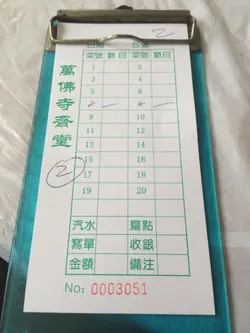 2
萬佛寺齋堂
2
菜號 數目 菜號 數目
1 2
3 4
5 6
9 10
11 12
13 14
15 16
17 18
19 20
汽水 齋點
寫單 收銀
金額 備注
No: 0003051